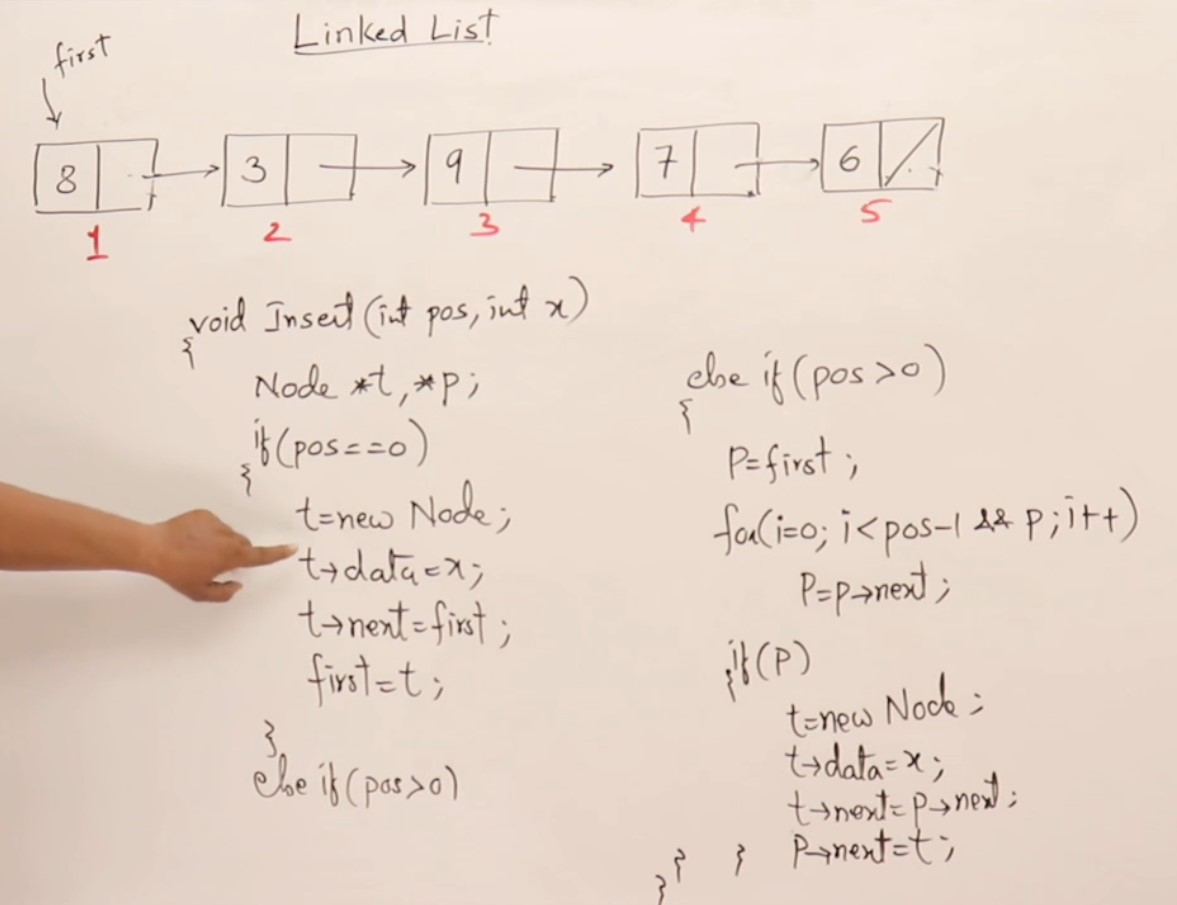 Linked List
first
8 3 9 7 6
1 2 3 4 5
void Insert (int pos, int x)
{
Node *t, *p;
if (pos==0)
{
t=new Node;
t→data=x;
t→next=first;
first=t;
}
else if (pos>0)
else if (pos>0)
{
P=first;
for(i=0; i<pos-1 && p; i++)
P=p→next;
if(P)
{
t=new Node;
t→data=x;
t→next=p→next;
P→next=t;
} } }